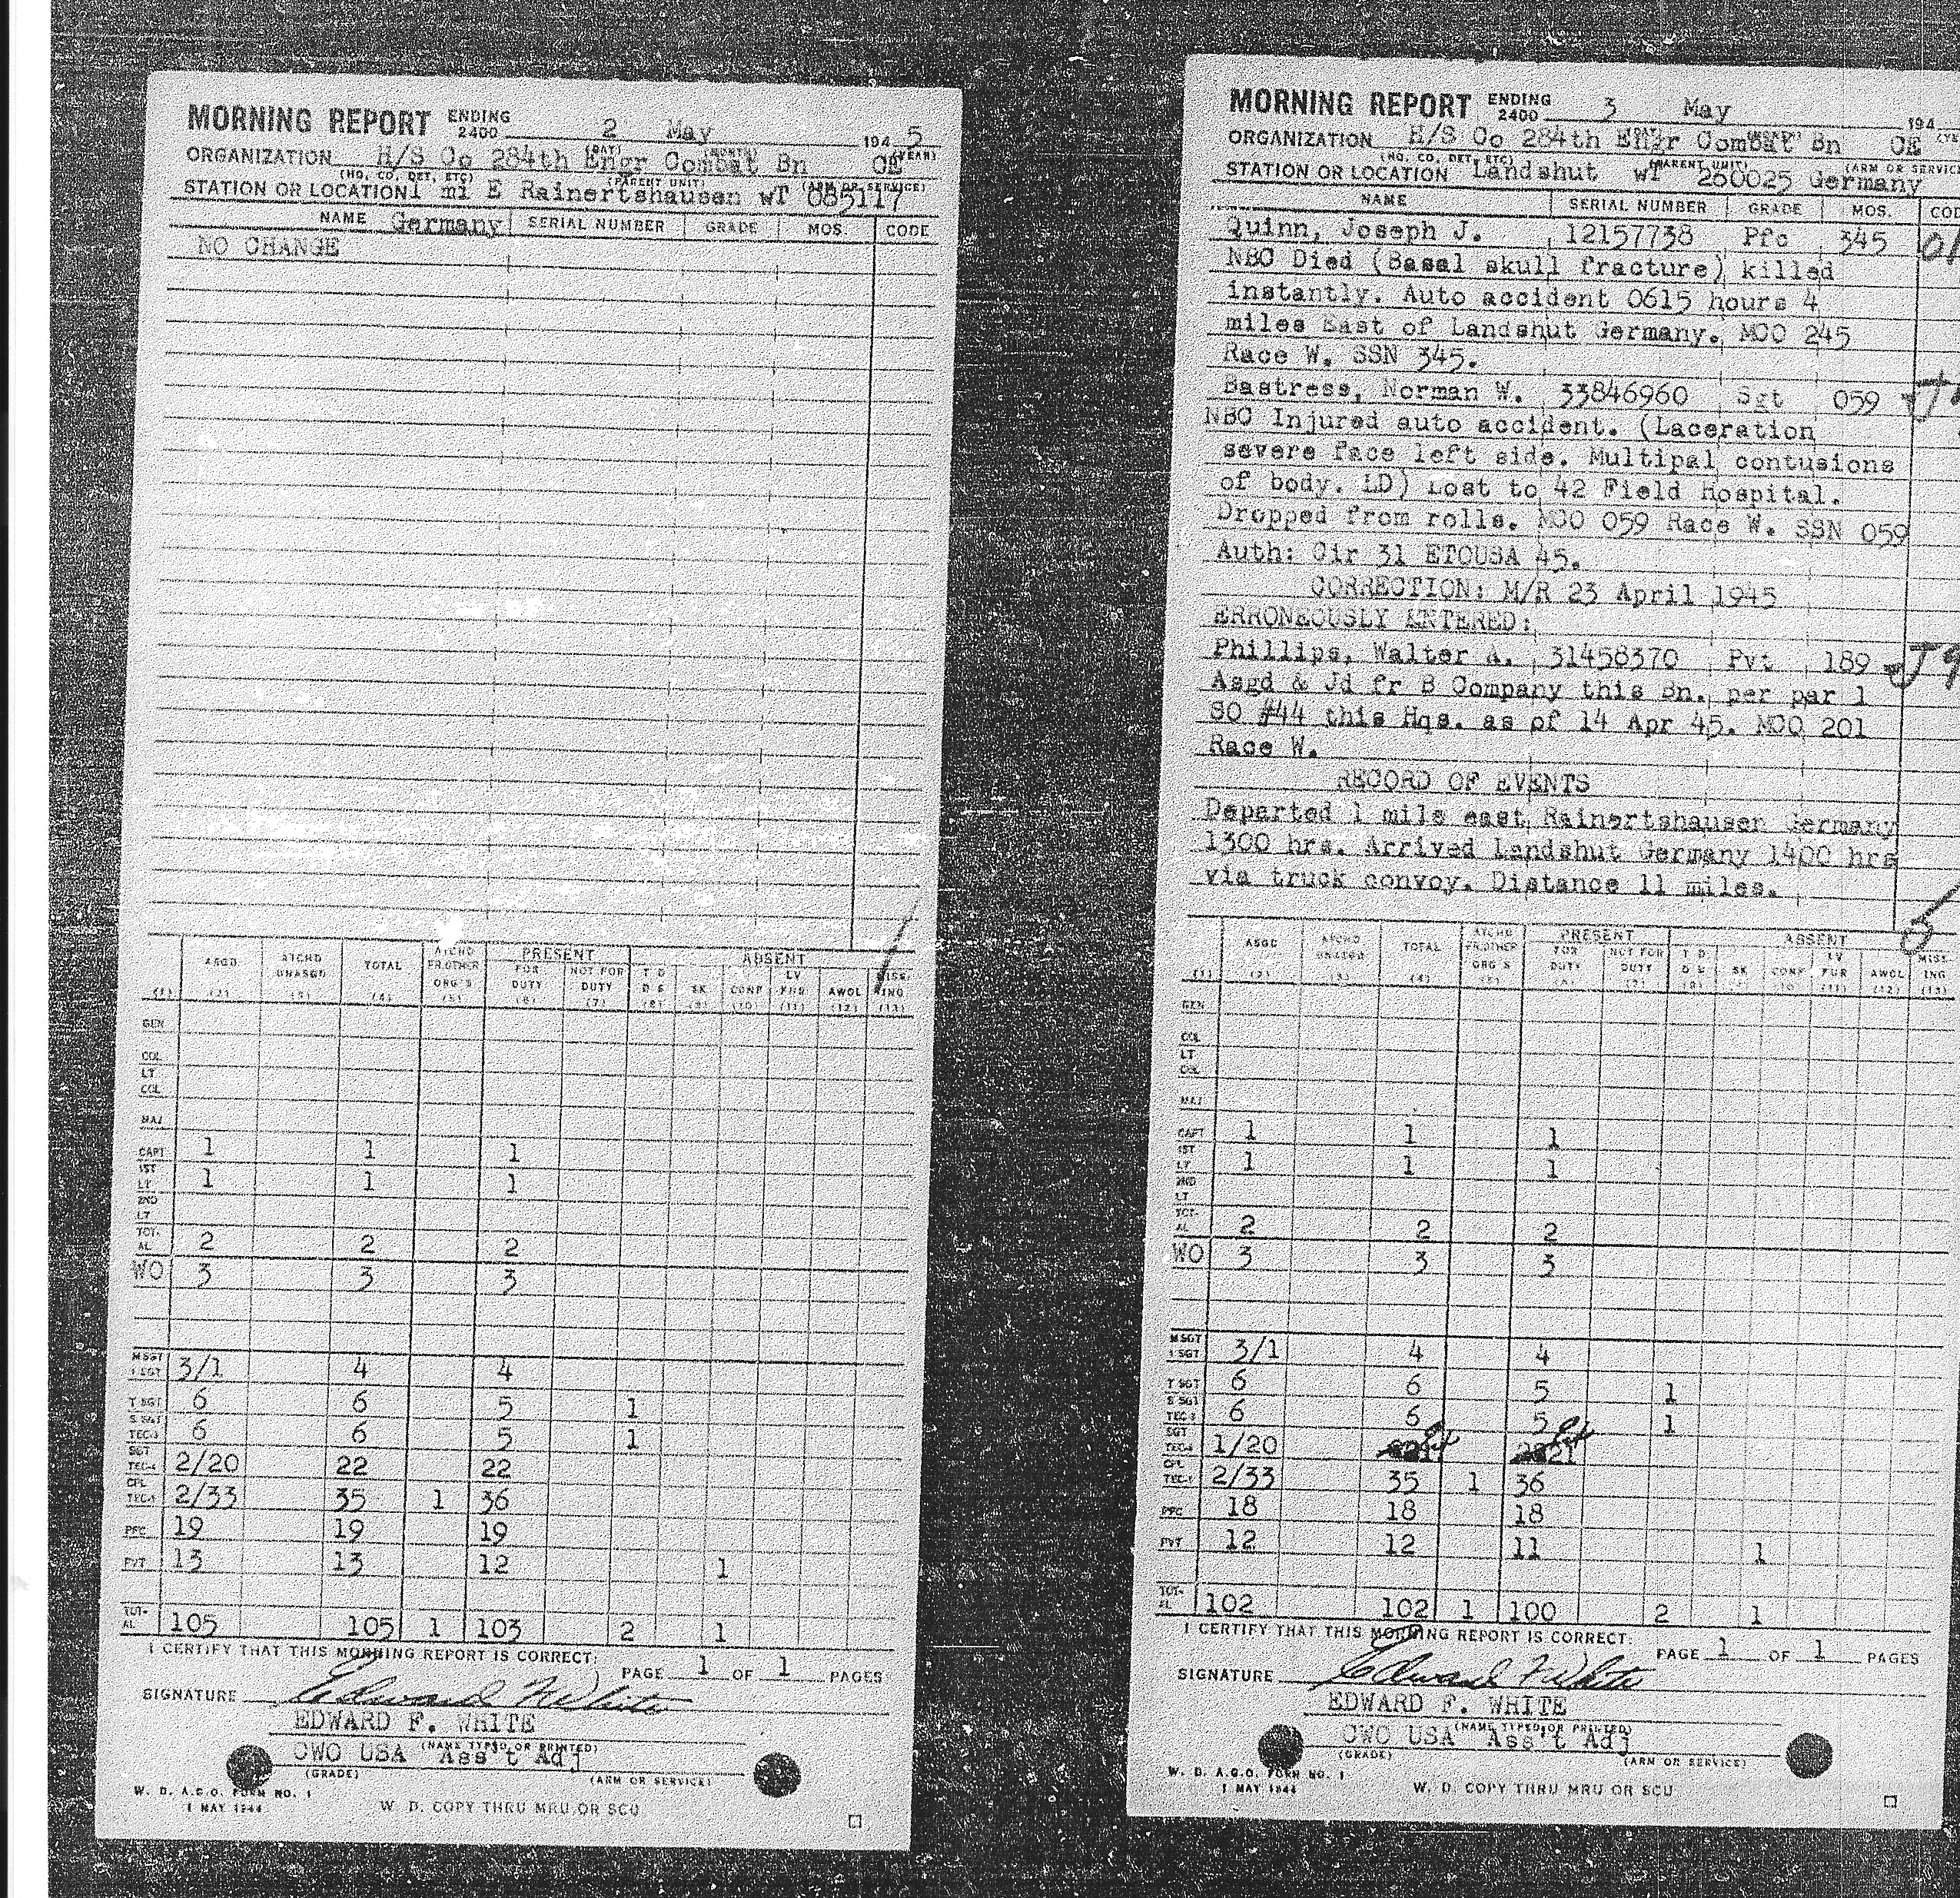 MORNING REPORT ENDING 2400 2 May 1945
(DAY) (MONTH) (YEAR)
ORGANIZATION H/S Co 284th Engr Combat Bn CE
(HQ, CO, DET, ETC) (PARENT UNIT) (ARM OR SERVICE)
STATION OR LOCATION 1 mi E Rainertshausen wT 085117
Germany
NAME SERIAL NUMBER GRADE MOS. CODE
NO CHANGE
PRESENT ABSENT
ASGD ATCHD UNASGD TOTAL ATCHD FR.OTHER ORG'S FOR DUTY NOT FOR DUTY T D D S SK CONF LV FUR AWOL MISS-ING
(1) (2) (3) (4) (5) (6) (7) (8) (9) (10) (11) (12) (13)
GEN
COL
LT COL
MAJ
CAPT 1 1 1
1ST LT 1 1 1
2ND LT
TOT-AL 2 2 2
WO 3 3 3
M SGT 1 SGT 3/1 4 4
T SGT 6 6 5 1
S SGT TEC-3 6 6 5 1
SGT TEC-4 2/20 22 22
CPL TEC-5 2/33 35 1 36
PFC 19 19 19
PVT 13 13 12 1
TOT-AL 105 105 1 103 2 1
I CERTIFY THAT THIS MORNING REPORT IS CORRECT:
PAGE 1 OF 1 PAGES
SIGNATURE Edward F White
EDWARD F. WHITE
(NAME TYPED OR PRINTED)
CWO USA Ass't Adj
(GRADE) (ARM OR SERVICE)
W. D. A.G.O. FORM NO. 1
1 MAY 1944
W. D. COPY THRU MRU OR SCU
MORNING REPORT ENDING 2400 3 May 194
ORGANIZATION H/S Co 284th Engr Combat Bn CE
(HQ, CO, DET, ETC) (PARENT UNIT) (ARM OR SERVICE
STATION OR LOCATION Landshut wT 260025 Germany
NAME SERIAL NUMBER GRADE MOS. COD
Quinn, Joseph J. 12157738 Pfc 345
NBC Died (Basal skull fracture) killed
instantly. Auto accident 0615 hours 4
miles East of Landshut Germany. MCO 245
Race W. SSN 345.
Bastress, Norman W. 33846960 Sgt 059
NBC Injured auto accident. (Laceration
severe face left side. Multipal contusions
of body. LD) Lost to 42 Field Hospital.
Dropped from rolls. MCO 059 Race W. SSN 059
Auth: Cir 31 ETOUSA 45.
CORRECTION: M/R 23 April 1945
ERRONEOUSLY ENTERED:
Phillips, Walter A. 31458370 Pvt 189
Asgd & Jd fr B Company this Bn. per par 1
SO #44 this Hqs. as of 14 Apr 45. MCO 201
Race W.
RECORD OF EVENTS
Departed 1 mile east Rainertshausen Germany
1300 hrs. Arrived Landshut Germany 1400 hrs
via truck convoy. Distance 11 miles.
5
PRESENT ABSENT
ASGD ATCHD UNASGD TOTAL ATCHD FR.OTHER ORG'S FOR DUTY NOT FOR DUTY T D D S SK CONF LV FUR AWOL MISS-ING
(1) (2) (3) (4) (5) (6) (7) (8) (9) (10) (11) (12) (13)
GEN
COL
LT COL
MAJ
CAPT 1 1 1
1ST LT 1 1 1
2ND LT
TOT-AL 2 2 2
WO 3 3 3
M SGT 1 SGT 3/1 4 4
T SGT 6 6 5 1
S SGT TEC-3 6 6 5 1
SGT TEC-4 1/20
CPL TEC-5 2/33 35 1 36
PFC 18 18 18
PVT 12 12 11 1
TOT-AL 102 102 1 100 2 1
I CERTIFY THAT THIS MORNING REPORT IS CORRECT:
PAGE 1 OF 1 PAGES
SIGNATURE Edward F White
EDWARD F. WHITE
(NAME TYPED OR PRINTED)
CWO USA Ass't Adj
(GRADE) (ARM OR SERVICE)
W. D. A.G.O. FORM NO. 1
1 MAY 1944
W. D. COPY THRU MRU OR SCU